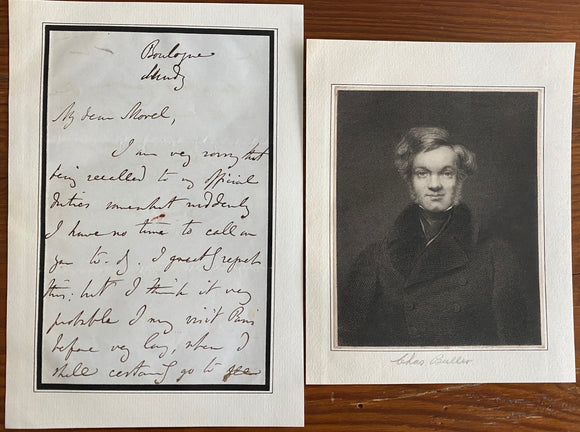 Boulogne
Sundy
My dear Morel,
I am very sorry that
being recalled to my official
duties somewhat suddenly
I have no time to call on
you to-dy. I greatly regret
this: but I think it very
probable I may visit Paris
before very long, when I
shall certainly go to see
Chas Buller